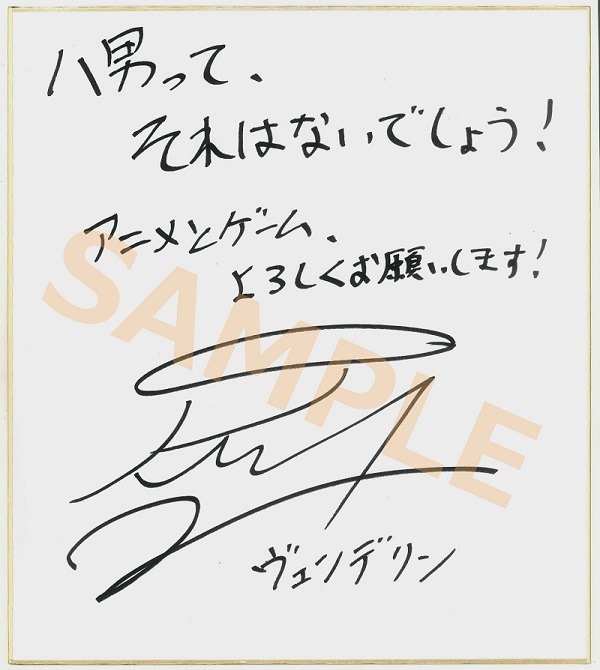 八男って、
それはないでしょう!
アニメとゲーム、
よろしくお願いします!
SAMPLE
ヴェンデリン